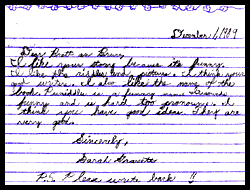 December 1, 1989
Dear Brett an Brian,
I like your story because its funny.
I like the riddles and picture. I think your
good writers. I also like the name of the
book. Rumiddle is a funny name. Sounds
funny and is hard too pronounce. I
think you have good ideas. They are
very good.
Sincerely,
Sarah
P.S. Please write back !!